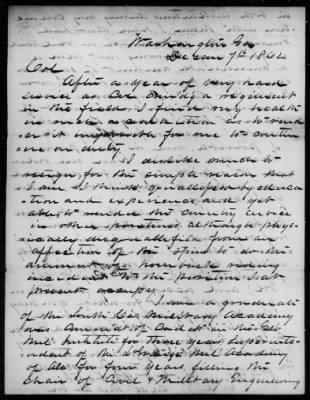 Washington Ga
Decem 7th 1864
Col
After a year of very hard
service as Col Comdg a regiment
in the field I find my health
in such a condition as to rend-
er it impossible for me to contin-
ue on duty
I dislike much to
resign for the simple reason that
I am I think qualified by educa-
tion and experience and yet
able to render the country service
in other positions although phys-
ically disqualified from an
affection of the spine to do the
amount of horseback riding
incident to the position I at
present occupy
I am a graduate
of the South Ca Military Academy
was Comdt of Cadets in the Geo
Mil Institute for three years, Superinten-
dent of the Mil Academy
of Ala for four years, filling the
Chair of Civil & Military Engineering